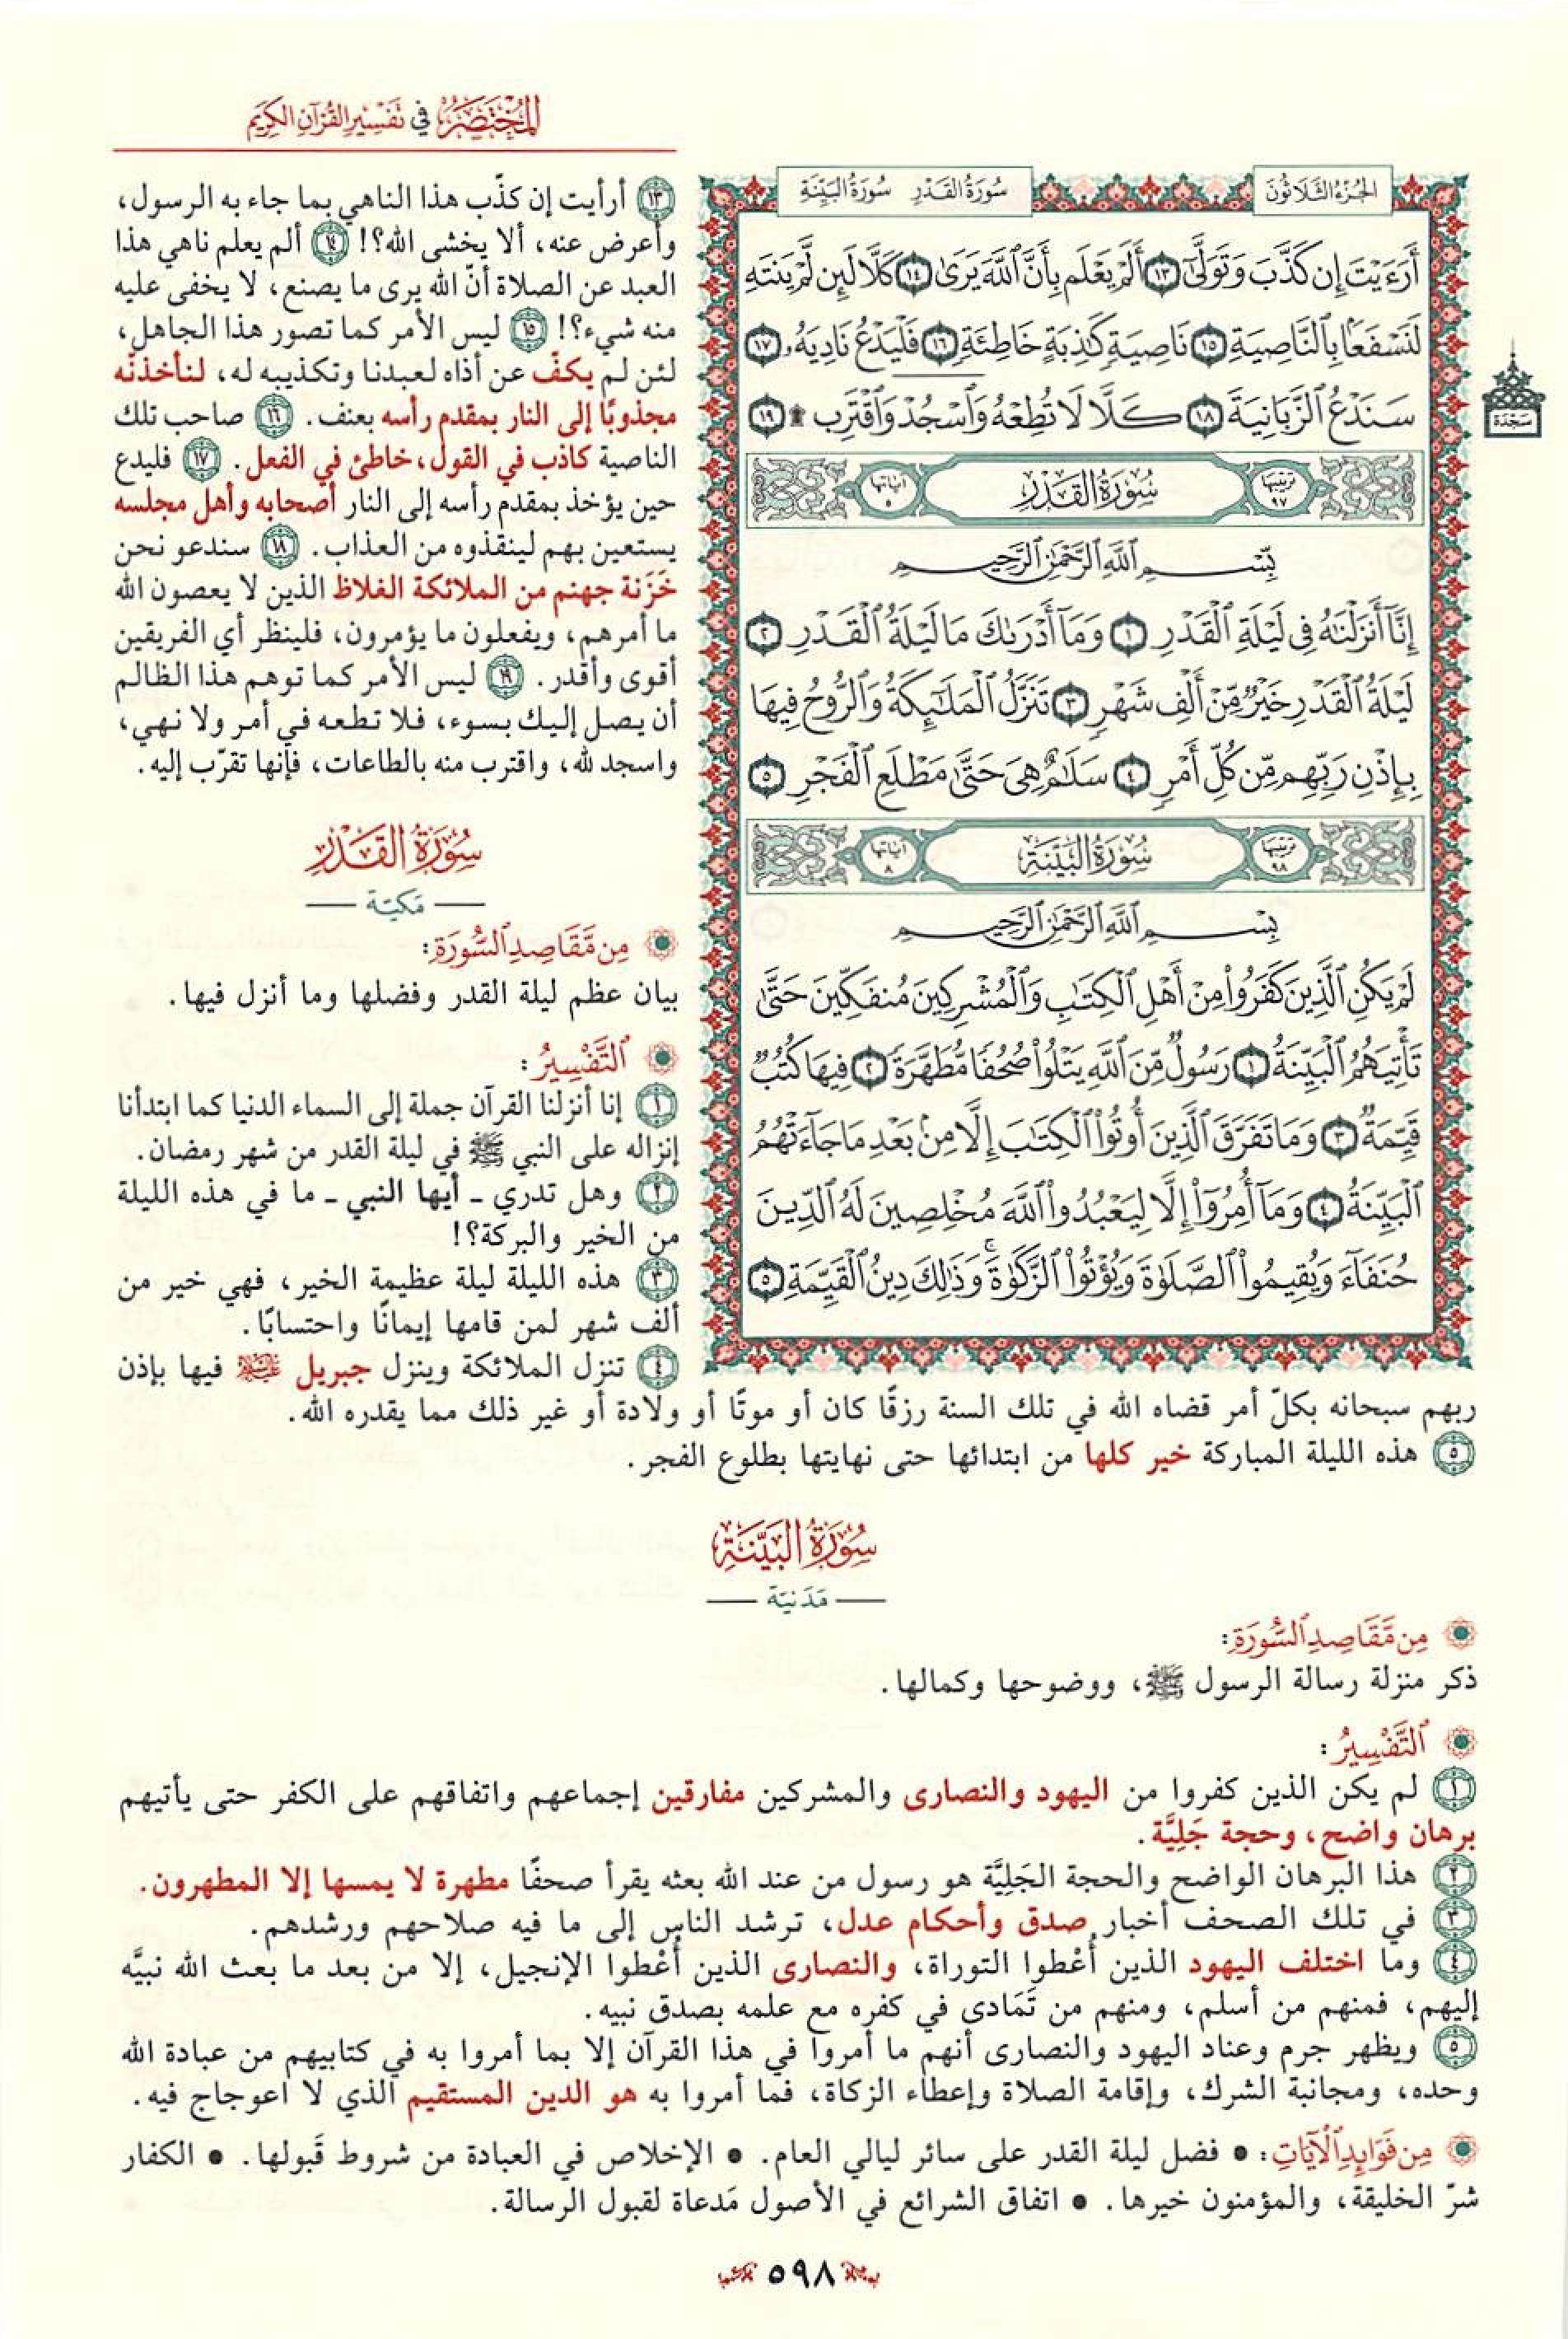 المختصر في تفسير القرآن الكريم
الجزء الثلاثون
سورة القدر سورة البينة
أَرَءَيْتَ إِن كَذَّبَ وَتَوَلَّىٰٓ ١٣ أَلَمْ يَعْلَم بِأَنَّ ٱللَّهَ يَرَىٰ ١٤ كَلَّا لَئِن لَّمْ يَنتَهِ
لَنَسْفَعًۢا بِٱلنَّاصِيَةِ ١٥ نَاصِيَةٖ كَٰذِبَةٍ خَاطِئَةٖ ١٦ فَلْيَدْعُ نَادِيَهُۥ ١٧
سَنَدْعُ ٱلزَّبَانِيَةَ ١٨ كَلَّا لَا تُطِعْهُ وَٱسْجُدْ وَٱقْتَرِب ۩ ١٩
سجدة
ترتيبها ٩٧ سُورَةُ القَدْرِ آياتها ٥
بِسْمِ ٱللَّهِ ٱلرَّحْمَٰنِ ٱلرَّحِيمِ
إِنَّآ أَنزَلْنَٰهُ فِى لَيْلَةِ ٱلْقَدْرِ ١ وَمَآ أَدْرَىٰكَ مَا لَيْلَةُ ٱلْقَدْرِ ٢
لَيْلَةُ ٱلْقَدْرِ خَيْرٌ مِّنْ أَلْفِ شَهْرٍ ٣ تَنَزَّلُ ٱلْمَلَٰٓئِكَةُ وَٱلرُّوحُ فِيهَا
بِإِذْنِ رَبِّهِم مِّن كُلِّ أَمْرٍ ٤ سَلَٰمٌ هِىَ حَتَّىٰ مَطْلَعِ ٱلْفَجْرِ ٥
ترتيبها ٩٨ سُورَةُ البَيِّنَةِ آياتها ٨
بِسْمِ ٱللَّهِ ٱلرَّحْمَٰنِ ٱلرَّحِيمِ
لَمْ يَكُنِ ٱلَّذِينَ كَفَرُوا۟ مِنْ أَهْلِ ٱلْكِتَٰبِ وَٱلْمُشْرِكِينَ مُنفَكِّينَ حَتَّىٰ
تَأْتِيَهُمُ ٱلْبَيِّنَةُ ١ رَسُولٌ مِّنَ ٱللَّهِ يَتْلُوا۟ صُحُفًا مُّطَهَّرَةً ٢ فِيهَا كُتُبٌ
قَيِّمَةٌ ٣ وَمَا تَفَرَّقَ ٱلَّذِينَ أُوتُوا۟ ٱلْكِتَٰبَ إِلَّا مِنۢ بَعْدِ مَا جَآءَتْهُمُ
ٱلْبَيِّنَةُ ٤ وَمَآ أُمِرُوٓا۟ إِلَّا لِيَعْبُدُوا۟ ٱللَّهَ مُخْلِصِينَ لَهُ ٱلدِّينَ
حُنَفَآءَ وَيُقِيمُوا۟ ٱلصَّلَوٰةَ وَيُؤْتُوا۟ ٱلزَّكَوٰةَ ۚ وَذَٰلِكَ دِينُ ٱلْقَيِّمَةِ ٥
١٣ أرأيت إن كذّب هذا الناهي بما جاء به الرسول،
وأعرض عنه، ألا يخشى الله؟! ١٤ ألم يعلم ناهي هذا
العبد عن الصلاة أنّ الله يرى ما يصنع، لا يخفى عليه
منه شيء؟! ١٥ ليس الأمر كما تصور هذا الجاهل،
لئن لم يكفّ عن أذاه لعبدنا وتكذيبه له، لنأخذنّه
مجذوبًا إلى النار بمقدم رأسه بعنف. ١٦ صاحب تلك
الناصية كاذب في القول، خاطئ في الفعل. ١٧ فليدع
حين يؤخذ بمقدم رأسه إلى النار أصحابه وأهل مجلسه
يستعين بهم لينقذوه من العذاب. ١٨ سندعو نحن
خَزَنة جهنم من الملائكة الغلاظ الذين لا يعصون الله
ما أمرهم، ويفعلون ما يؤمرون، فلينظر أي الفريقين
أقوى وأقدر. ١٩ ليس الأمر كما توهم هذا الظالم
أن يصل إليك بسوء، فلا تطعه في أمر ولا نهي،
واسجد لله، واقترب منه بالطاعات، فإنها تقرّب إليه.
سُورَةُ القَدْرِ
مَكيّة
مِن مَّقَاصِدِ ٱلسُّورَةِ:
بيان عظم ليلة القدر وفضلها وما أنزل فيها.
ٱلتَّفْسِيرُ:
١ إنا أنزلنا القرآن جملة إلى السماء الدنيا كما ابتدأنا
إنزاله على النبي ﷺ في ليلة القدر من شهر رمضان.
٢ وهل تدري - أيها النبي - ما في هذه الليلة
من الخير والبركة؟!
٣ هذه الليلة ليلة عظيمة الخير، فهي خير من
ألف شهر لمن قامها إيمانًا واحتسابًا.
٤ تنزل الملائكة وينزل جبريل عليه السلام فيها بإذن
ربهم سبحانه بكلّ أمر قضاه الله في تلك السنة رزقًا كان أو موتًا أو ولادة أو غير ذلك مما يقدره الله.
٥ هذه الليلة المباركة خير كلها من ابتدائها حتى نهايتها بطلوع الفجر.
سُورَةُ البَيِّنَةِ
مَدَنيّة
مِن مَّقَاصِدِ ٱلسُّورَةِ:
ذكر منزلة رسالة الرسول ﷺ، ووضوحها وكمالها.
ٱلتَّفْسِيرُ:
١ لم يكن الذين كفروا من اليهود والنصارى والمشركين مفارقين إجماعهم واتفاقهم على الكفر حتى يأتيهم
برهان واضح، وحجة جَلِيَّة.
٢ هذا البرهان الواضح والحجة الجَلِيَّة هو رسول من عند الله بعثه يقرأ صحفًا مطهرة لا يمسها إلا المطهرون.
٣ في تلك الصحف أخبار صدق وأحكام عدل، ترشد الناس إلى ما فيه صلاحهم ورشدهم.
٤ وما اختلف اليهود الذين أُعْطوا التوراة، والنصارى الذين أُعْطوا الإنجيل، إلا من بعد ما بعث الله نبيَّه
إليهم، فمنهم من أسلم، ومنهم من تَمَادى في كفره مع علمه بصدق نبيه.
٥ ويظهر جرم وعناد اليهود والنصارى أنهم ما أمروا في هذا القرآن إلا بما أمروا به في كتابيهم من عبادة الله
وحده، ومجانبة الشرك، وإقامة الصلاة وإعطاء الزكاة، فما أمروا به هو الدين المستقيم الذي لا اعوجاج فيه.
مِن فَوَائِدِ ٱلْآيَاتِ: • فضل ليلة القدر على سائر ليالي العام. • الإخلاص في العبادة من شروط قَبولها. • الكفار
شرّ الخليقة، والمؤمنون خيرها. • اتفاق الشرائع في الأصول مَدعاة لقبول الرسالة.
٥٩٨